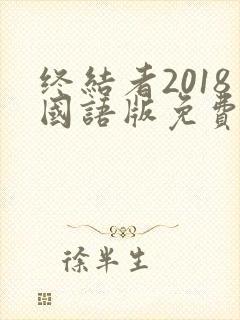 终結者2018
國語版免費
徐半生